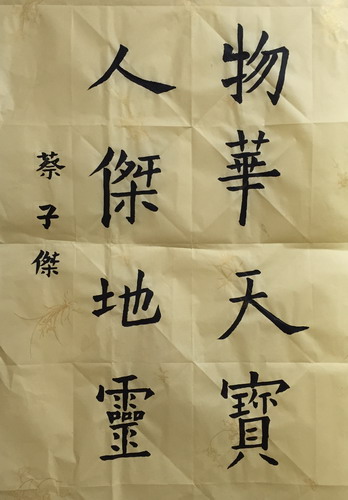 物華天寶
人傑地靈
蔡子傑